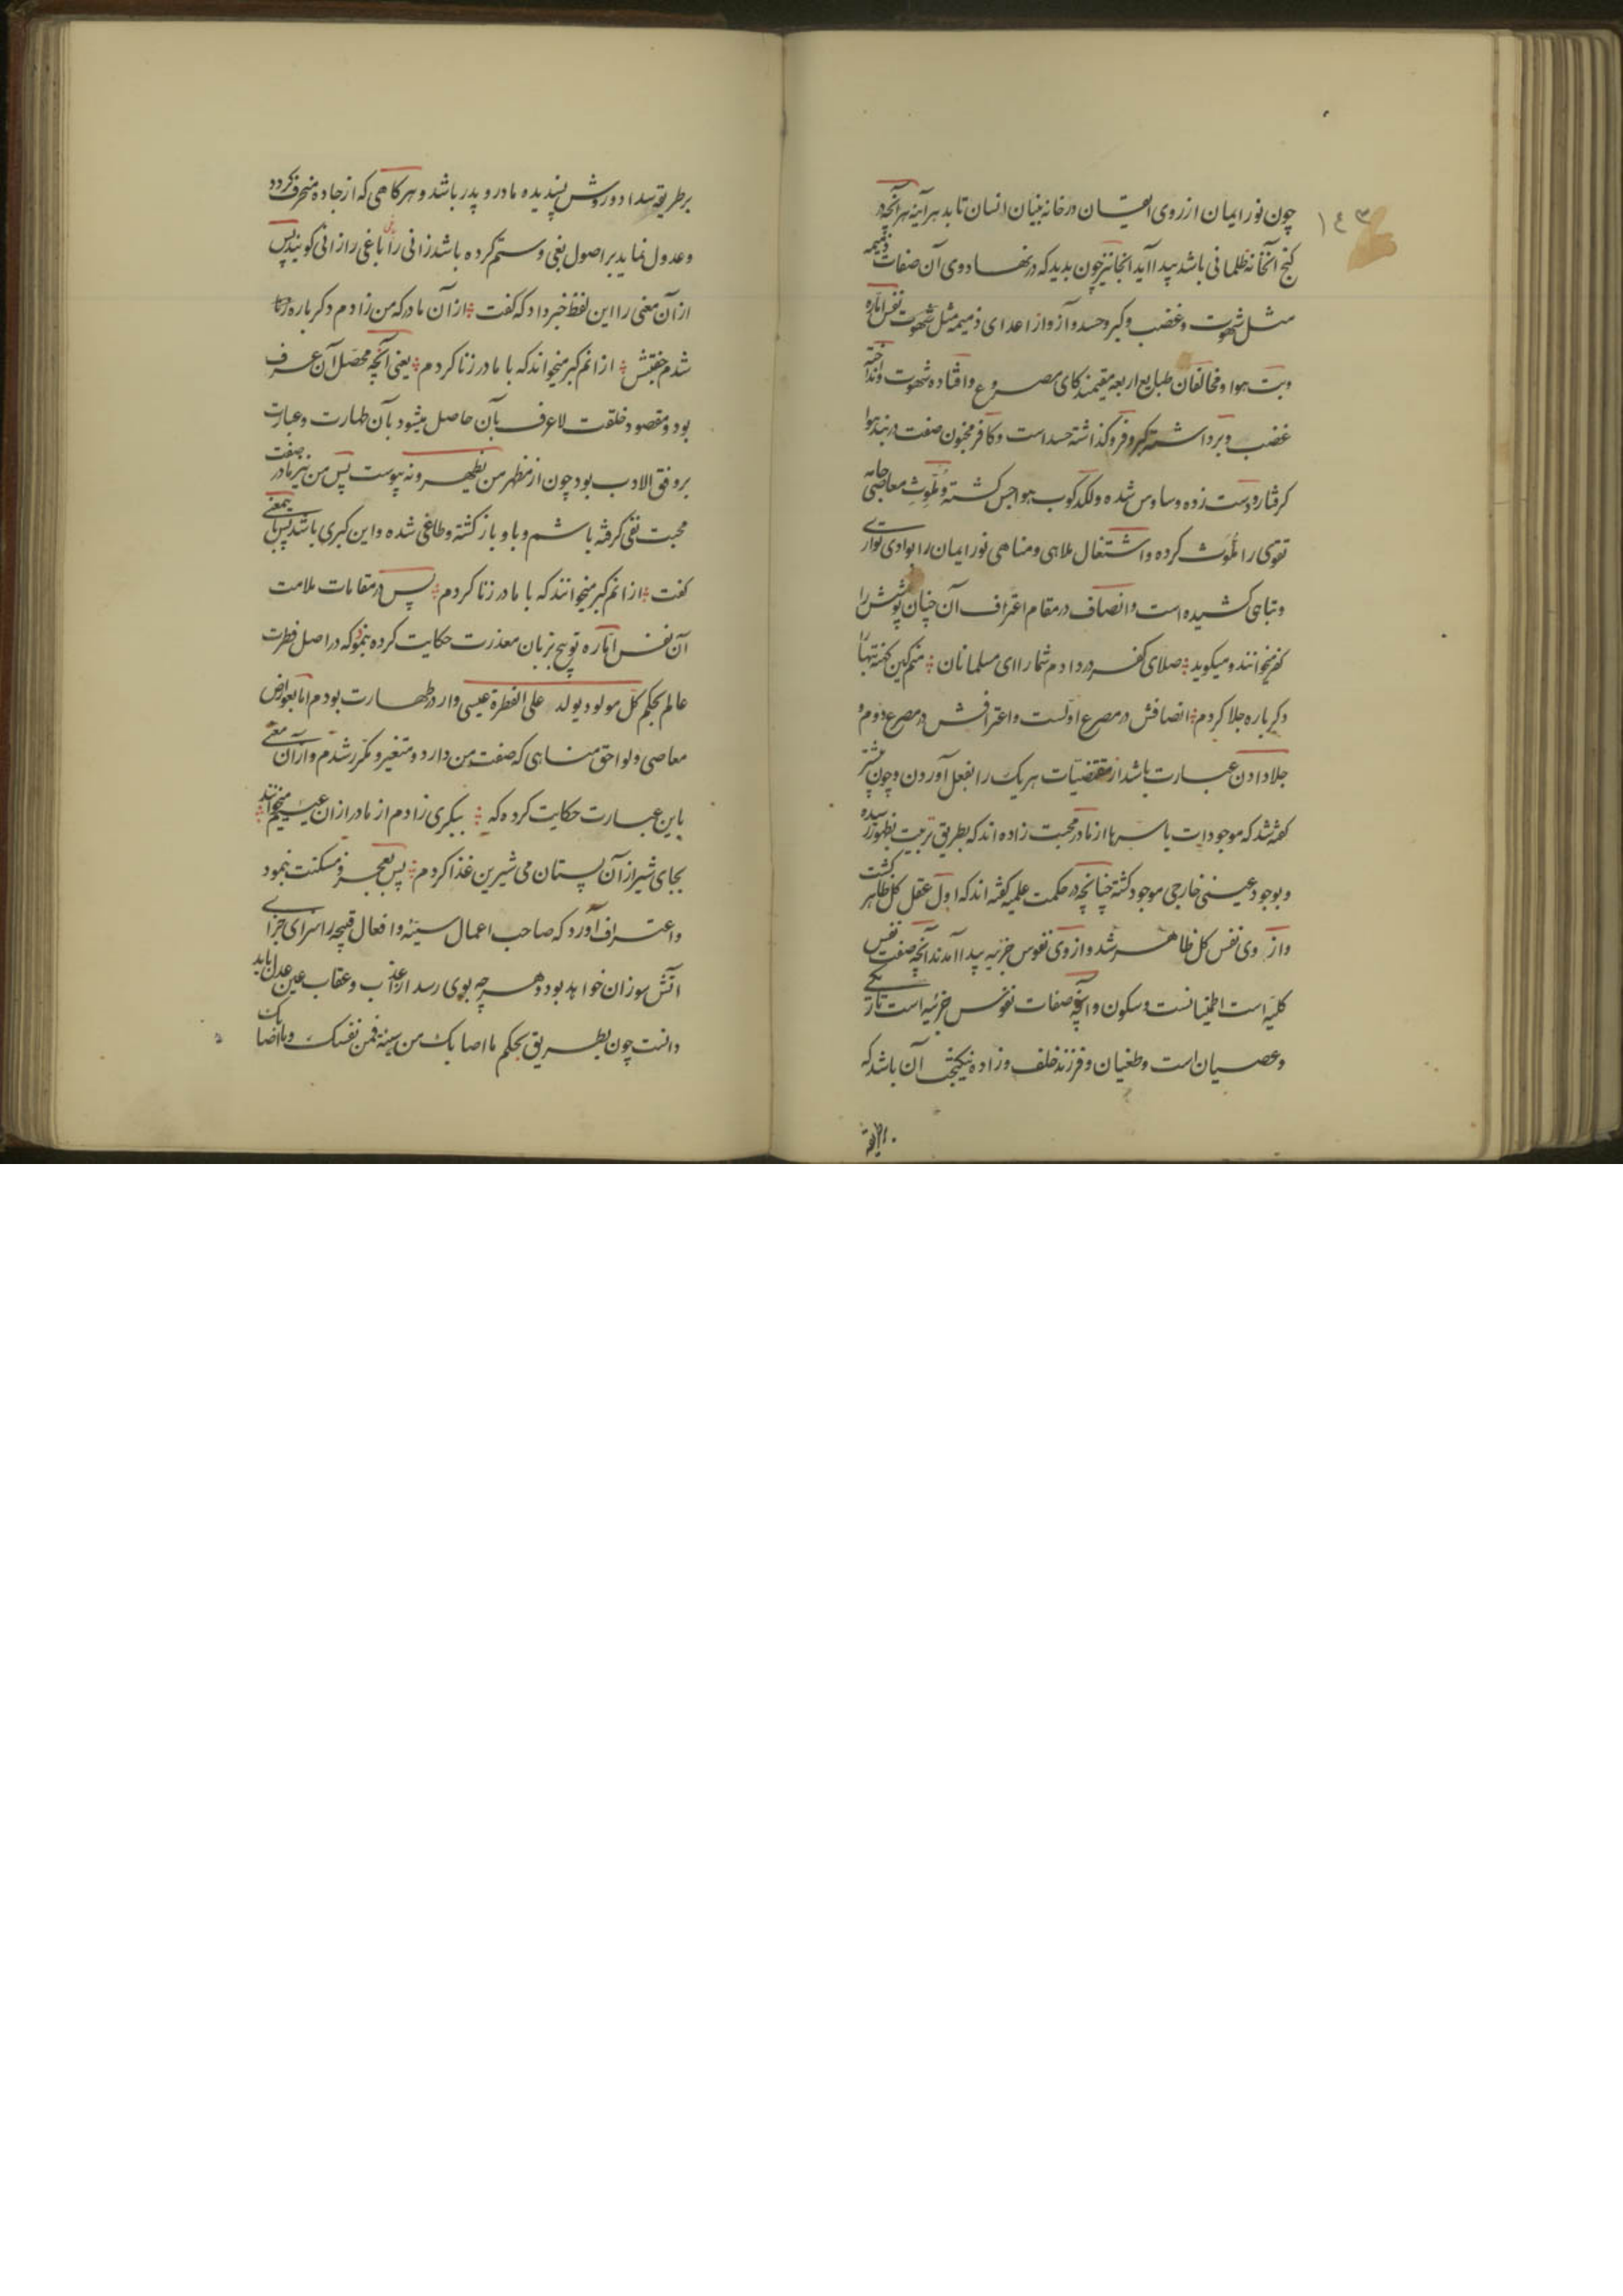 ۱٤۳
چون نور ایمان از روی ایقان در خانه بنیان انسان تابد هر آینه هر آنچه در
کنج آنخانه ظلمانی باشد پیدا آید آنجا نیز چون بدید که در نهاد وی آن صفات ذمیمه
مثل شهوت و غضب و کبر و حسد و آز و از اعدای ذمیمه مثل شهوت نفس اماره
وبت هوا و مخالفان طبایع اربعه مقیمند کای مصروع و افتاده شهوت و انداخته
غضب و برداشته کبر و فرو گذاشته حسد است و کافر مجنون صفت در بند هوا
کرفتار و دست زده وساوس شده و لکدکوب هواجس کشته و بلوث معاصی جامه
تقوی را ملوث کرده و اشتغال ملاهی و مناهی نور ایمان را بوادی تواری
و تباهی کشیده است و انصاف در مقام اعتراف آن چنان پوشش را
کفر میخوانند و میکوید صلای کفر در دادم شما را ای مسلمانان منم کین کهنه بتها را
دکر باره جلا کردم انصافش در مصرع اولست و اعترافش در مصرع دوم و
جلا دادن عبارت باشد از مقتضیات هر یک را بفعل آوردن و چون پیشتر
کفته شد که موجودات باسرها از مادر محبت زاده اند که بطریق تربیت بظهور رسیده
و بوجود عینی خارجی موجود کشته چنانچه در حکمت علمیه کفته اند که اول عقل کل ظاهر کشت
و از وی نفس کل ظاهر شد و از وی نفوس جزئیه پیدا آمدند آنچه صفت نفس
کلیه است اطمینانست و سکون و آنچه صفات نفوس جزئیه است تاریکی
و عصیان است و طغیان و فرزند خلف و زاده نیکبخت آن باشد که
بر طریقه
بر طریقه سداد و روش پسندیده مادر و پدر باشد و هر کاهی که از جاده منحرف کردد
و عدول نماید بر اصول بغی و ستم کرده باشد زانی را باغی را زانی کویند پس
از آن معنی را این لفظ خبر داد که کفت از آن مادر که من زادم دکر باره
شدم جفتش از انم کبر میخوانند که با مادر زنا کردم یعنی آنچه محصل آن عرف
بود و مقصود خلقت لاعرف بآن حاصل میشود بآن طهارت و عبارت
بر وفق الادب بود چون از مظهر من بظهیر و نه پیوست پس من نیز مادر صفت
محبت نفی کرفته باشم و با و باز کشته و طاغی شده و این کبری باشد پس باین معنی
کفت از انم کبر میخوانند که با مادر زنا کردم پس در مقامات ملامت
آن نفس اماره توبیخ بزبان معذرت حکایت کرده بنمود که در اصل فطرت
عالم بحکم کل مولود یولد علی الفطرة عیسی وار در طهارت بودم اما بعوارض
معاصی و لواحق مناهی که صفت من دارد و متغیر و مکرر شدم و از آن معنی
باین عبارت حکایت کرده که ببکری زادم از مادر از ان عیسیم میخوانند
بجای شیر از آن پستان می شیرین غذا کردم پس بعجز و مسکنت بنمود
و اعتراف آورد که صاحب اعمال سیئه و افعال قبیحه را سزای جزای
آتش سوزان خواهد بود و هر چه بوی رسد از عذاب و عقاب عین عدل باید
دانست چون بطریق بحکم ما اصابک من سیئة فمن نفسک و ما اصابک